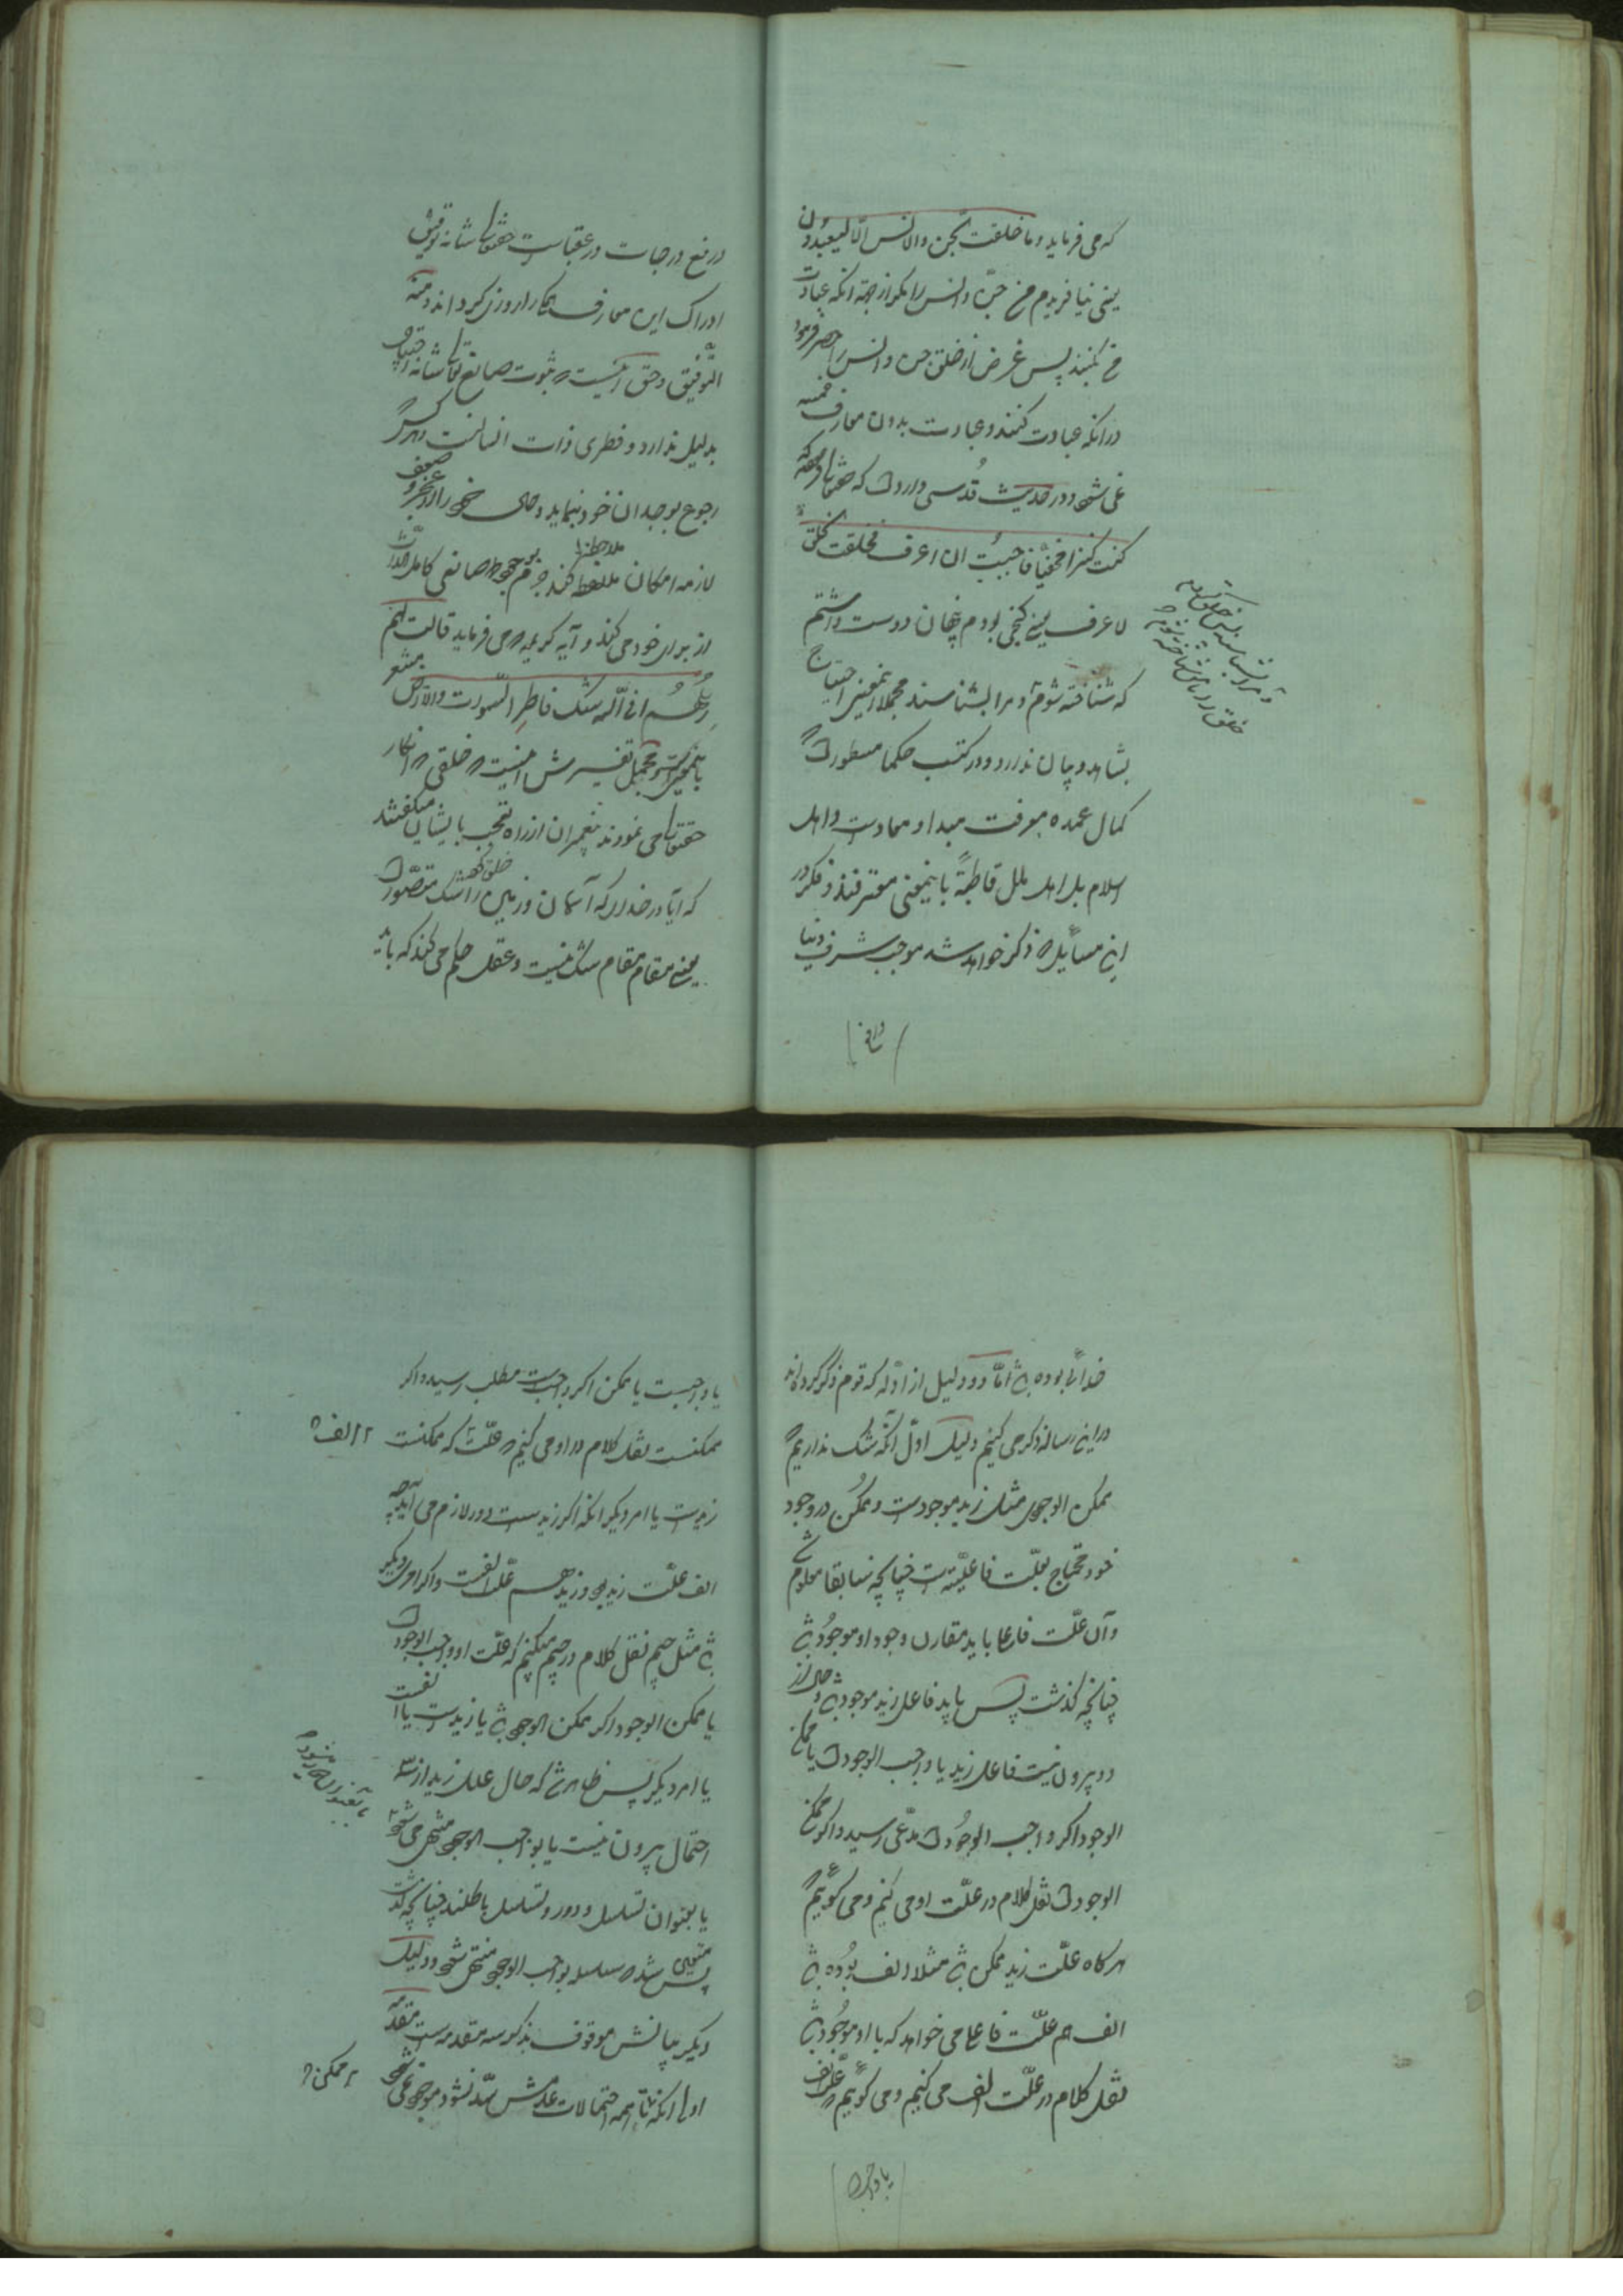 که می فرماید و ما خلقت الجن والانس الا لیعبدون
یعنی نیافریدم من جن و انس را مکر از جهة انکه عبادت
من کنند پس غرض از خلق جن و انس را حصر فرموده
در انکه عبادت کنند و عبادت بدون معارف خمسه
نمی شود و در حدیث قدسی وارد است که
کنت کنزا مخفیا فاحببت ان اعرف فخلقت الخلق
لاعرف یعنی کنجی بودم پنهان دوست داشتم
که شناخته شوم و مرا بشناسند مجملا اینمعنی احتیاج
بشاهد و بیان ندارد و در کتب حکما مسطور است که
کمال عمده معرفت مبدا و معادست و اهل
اسلام بل اهل ملل قاطبة باینمعنی معترفند و فکر در
این مسایل که ذکر خواهد شد موجب شرف دنیا
و رفع
درفع درجات در عقباست حقتعالی شانه توفیق
ادراک این معارف بما را روزی کرداند و منه
التوفیق و حق اینست که ثبوت صانع تعالی شانه احتیاج
بدلیل ندارد و فطری ذات انسانست و هر کس که
رجوع بوجدان خود نماید و حال خود را از عجز و ضعف
لازمه امکان ملاحظه کند جزم بوجود صانعی کامل الذات
از برای خود می کند و آیه کریمه که می فرماید قالت لهم
رسلهم افی الله شک فاطر السموات والارض مشعر
باینمعنی است و مجمل تفسیرش اینست که خلقی که انکار
حقتعالی می نمودند پیغمبران از راه تعجب بایشان میکفتند
که آیا در خدائی که آسمان و زمین را خلق کرده شک متصور است
یعنی مقام مقام شک نیست و عقل حکم می کند که باید
خدائی بوده باشد اما دو دلیل از ادله که قوم ذکر کرده اند
در این رساله ذکر می کنیم دلیل اول آنکه شک نداریم که
ممکن الوجودی مثل زید موجودست و ممکن در وجود
خود محتاج بعلت فاعلیتست چنانچه سابقا معلوم شد
و آن علت فاعلی باید مقارن وجود او موجود باشد
چنانچه کذشت پس باید فاعل زید موجود باشد و حال از
دو بیرون نیست فاعل زید یا واجب الوجود است یا ممکن
الوجود اکر واجب الوجود است مدعی رسید و اکر ممکن
الوجود است نقل کلام در علت او می کنیم و می کوییم که
هرکاه علت زید ممکن باشد مثلا الف بوده باشد
الف هم علت فاعلی می خواهد که با او موجود باشد
نقل کلام در علت الف می کنیم و می کوییم که علت الف
یا واجبست
یا واجبست یا ممکن اکر واجبست مطلب رسید و اکر
ممکنست نقل کلام در او می کنیم که علت که ممکنست
الف
زیدست یا امر دیکر انکه اکر زیدست دور لازم می آید چه
الف علت زید بود و زید هم علت الفست و اکر امر دیکر
باشد مثل جیم نقل کلام در جیم میکنیم که علت او واجب الوجود است
یا ممکن الوجود اکر ممکن الوجود باشد یا زیدست یا الفست
یا امر دیکر پس ظاهر شد که حال علل زید از سه
احتمال بیرون نیست یا بواجب الوجود منتهی می شود
یا بعنوان تسلسل و دور و تسلسل باطلند چنانچه کذشت
پس متعین شد که سلسله بواجب الوجود منتهی شود و دلیل
دیکر بیانش موقوف بذکر سه مقدمه است مقدمه
اولی انکه تا همه احتمالات عدمش سد نشود موجود نمی شود
ممکن